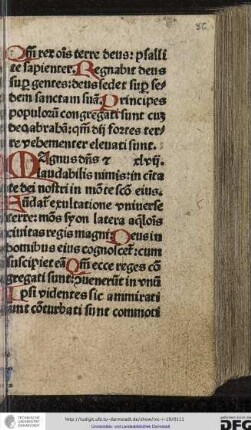 Qm̃ rex ois terre deus: psalli
te sapienter. Regnabit deus
sup gentes: deus sedet sup se-
dem sanctam suã. Principes
populorũ congregati sunt cuz
deo abrahã: qm̃ dij fortes ter-
re vehementer eleuati sunt.
Magnus dñs ⁊ xlvij.
laudabilis nimis: in ciuita
te dei nostri in mõte scõ eius.
Fundat̃ exultatione vniuerse
terre: mons syon latera aqlois
ciuitas regis magni. Deus in
domibus eius cognoscet̃: cum
suscipiet eã. Qm̃ ecce reges cõ
gregati sunt: ↄuenerũt in vnũ
Ipsi videntes sic ammirati
sunt cõturbati sunt commoti
http://tudigit.ulb.tu-darmstadt.de/show/inc-i-19/0111
Universitäts- und Landesbibliothek Darmstadt
TECHNISCHE
UNIVERSITÄT
DARMSTADT
DFG